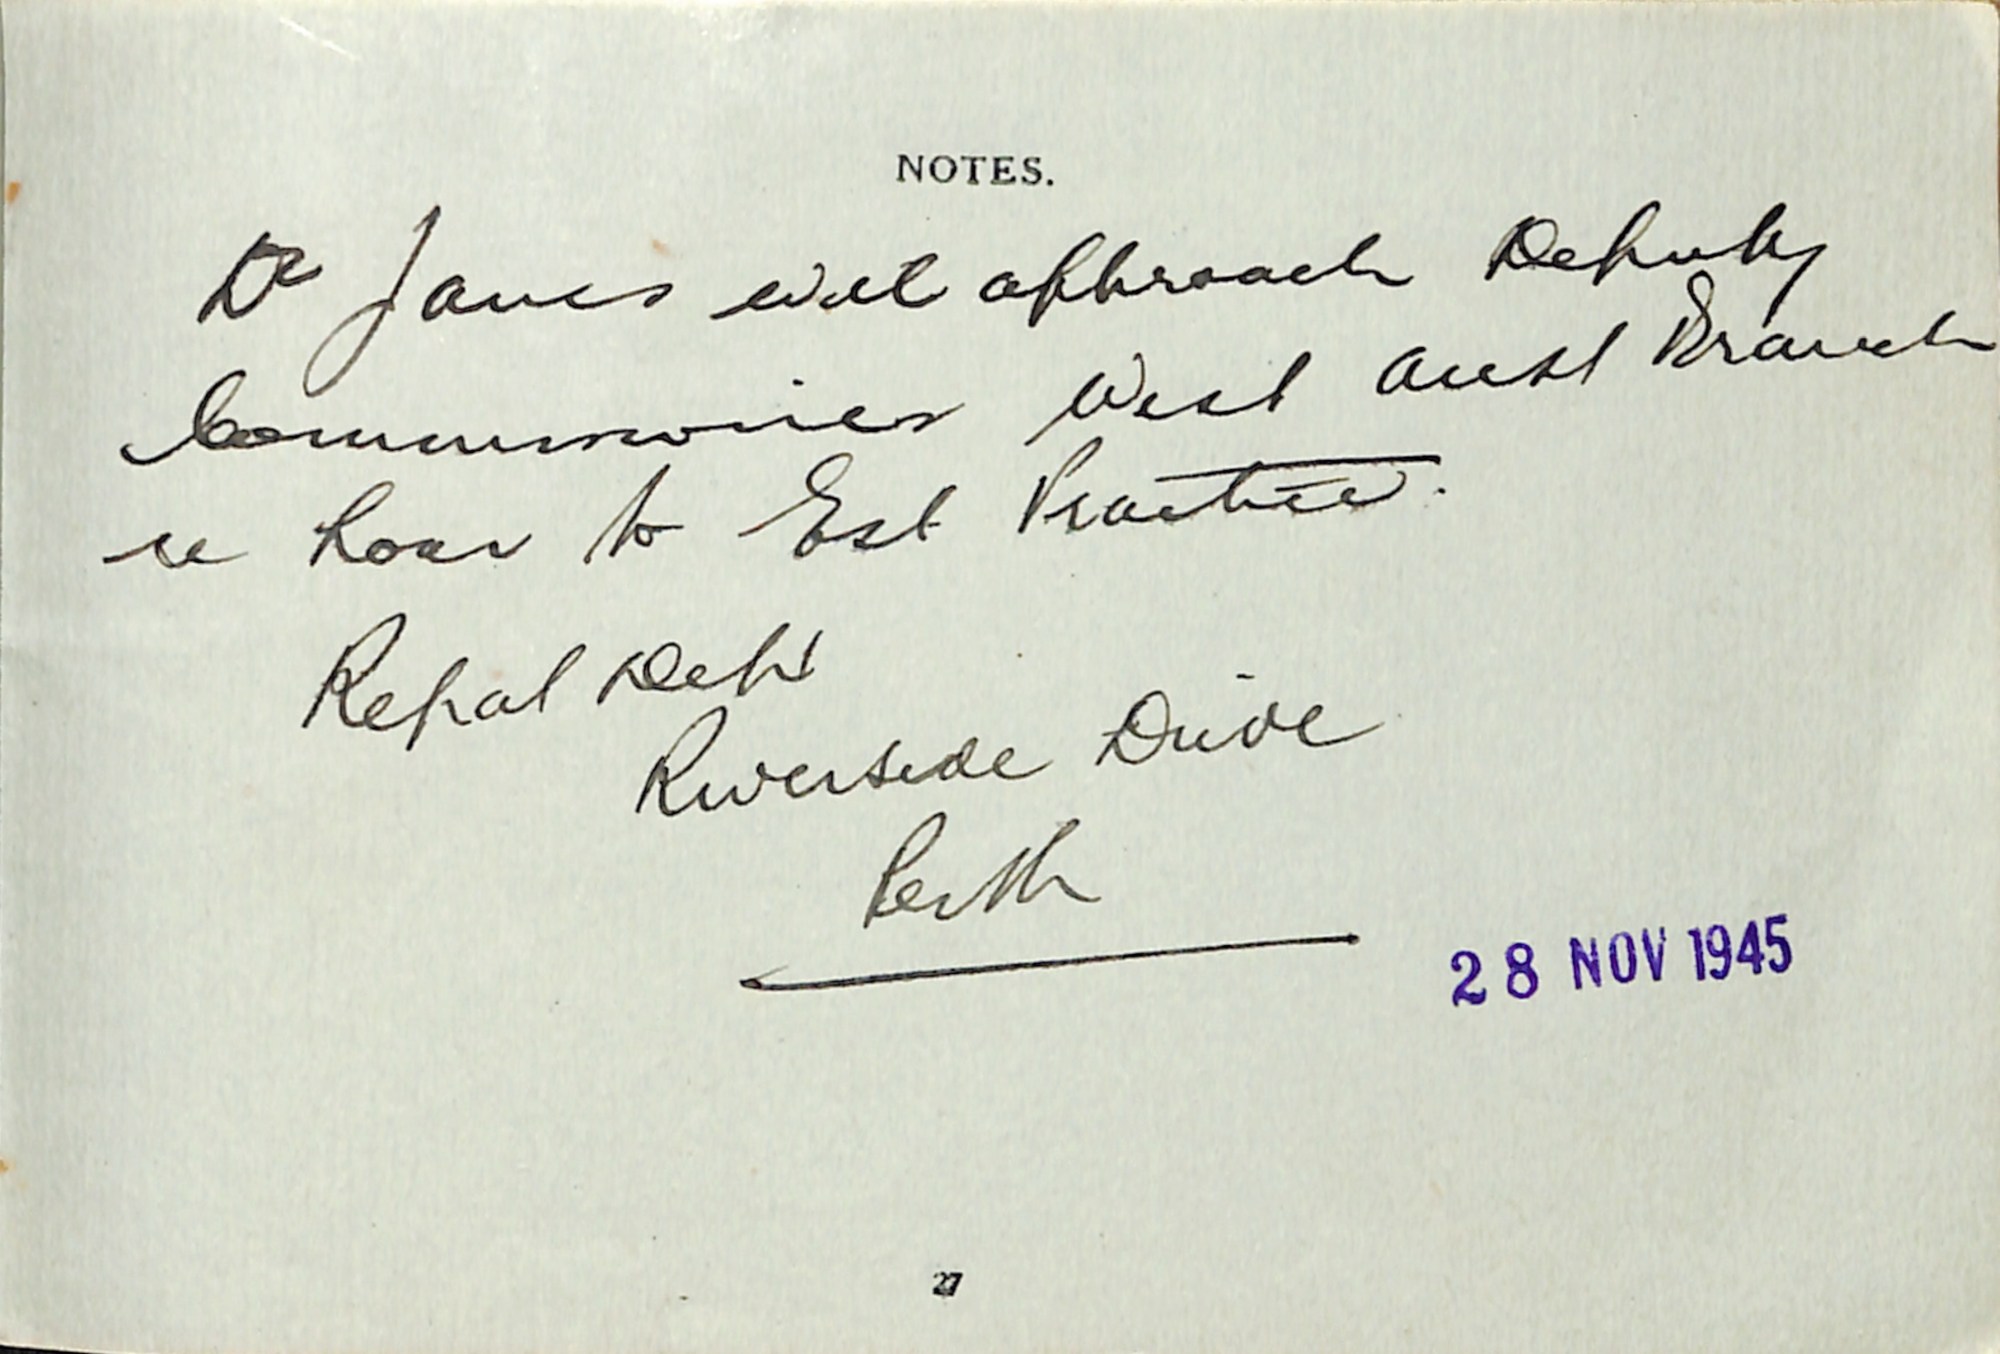 NOTES.
Dr James will approach Deputy
Commissioner West Aust Branch
re loan to Est Practice.
Repat Dept
Riverside Drive
Perth
28 NOV 1945
27